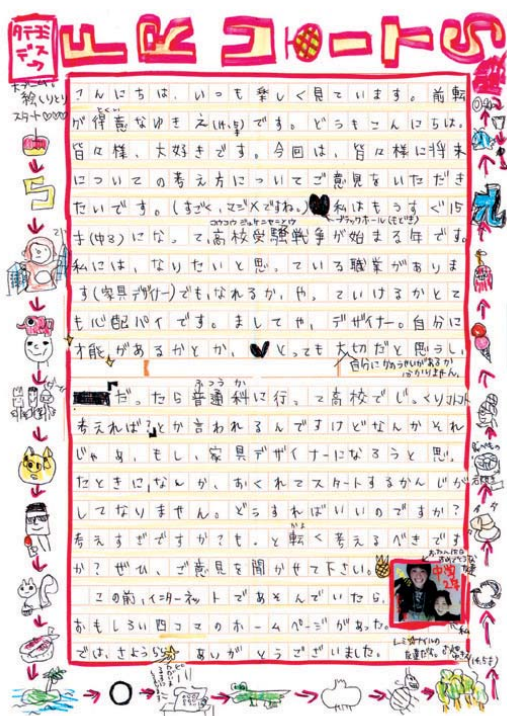 FRUITS
タテ玉デスク
絵しりとり
スタート♡♡♡
こんにちは、いつも楽しく見ています。前転
が得意なゆきえ(14才)です。どうもこんにちは。
皆々様、大好きです。今回は、皆々様に将来
についての考え方についてご意見をいただき
たいです。(すごく、マジメですね。)私はもうすぐ15
ブラックホール(もどき)
才(中3)になって、高校受騒戦争が始まる年です。
私には、なりたいと思っている職業がありま
す(家具デザイナー)でも、なれるか、やっていけるかとて
も心配パイです。ましてや、デザイナー。自分に
才能があるかとか、とっても大切だと思うし、
自分にさいのうがあるか
分かりません。
「だったら普通科に行って高校でじっくり
考えれば?」とか言われるんですけどなんかそれ
じゃあ、もし、家具デザイナーになろうと思っ
たときに、なんか、おくれてスタートするかんじが
してなりません。どうすればいいのですか?
考えすぎですか?もっと転く考えるべきです
か?ぜひ、ご意見を聞かせて下さい。
この前、インターネットであそんでいたら、
おもしろい四コマのホームページがあった。
では、さようなら ありがとうございました。
中学2年
私